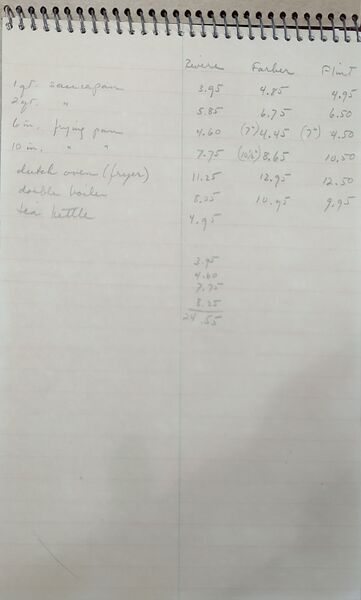 Revere Farber Flint
1 qt. saucepan 3.95 4.85 4.95
2 qt. " 5.85 6.75 6.50
6 in. frying pan 4.60 (7") 4.45 (7") 4.50
10 in. " " 7.75 (10½") 8.65 10.50
dutch oven (fryer) 11.25 12.95 12.50
double boiler 8.25 10.95 9.95
tea kettle 4.95
3.95
4.60
7.75
8.25
24.55